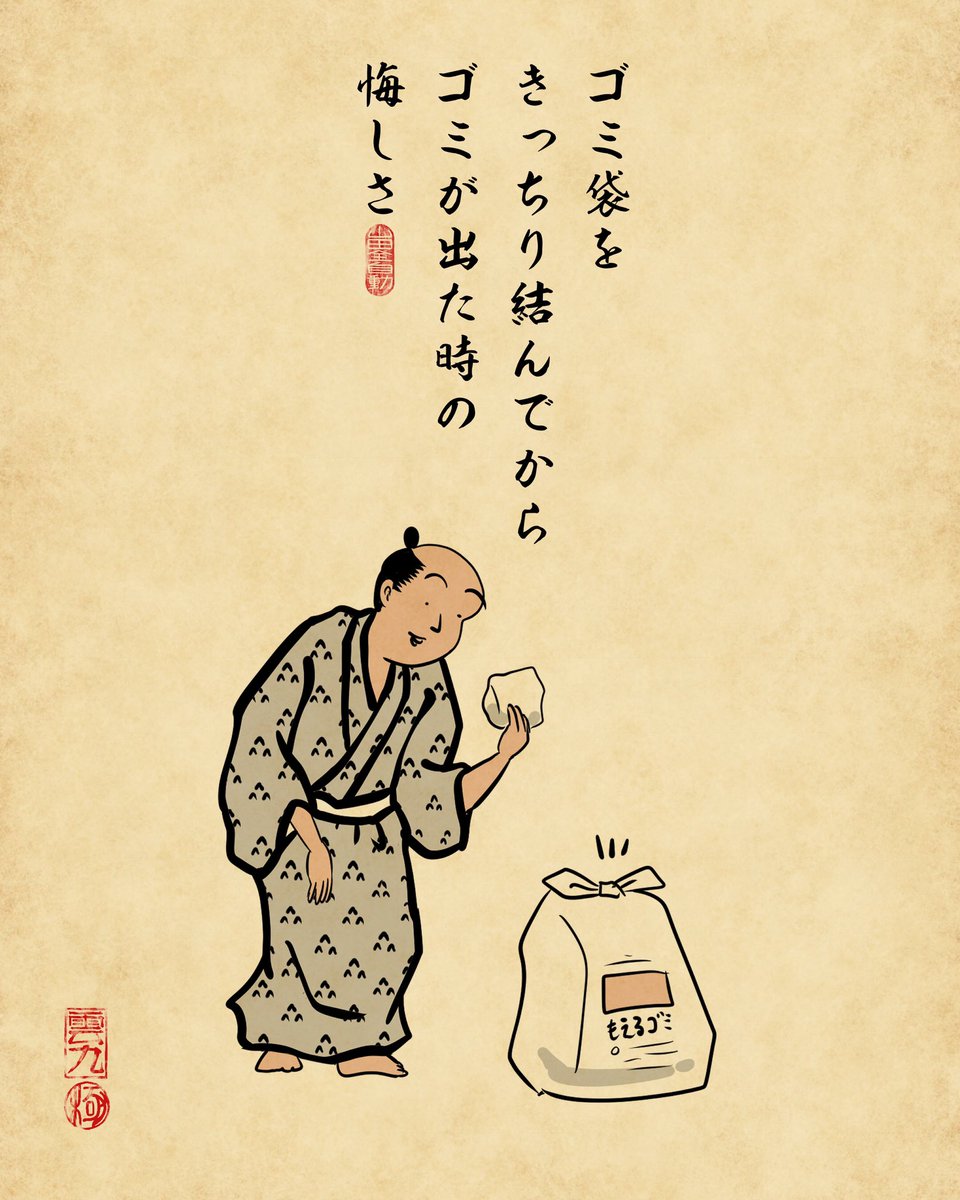 ゴミ袋を
きっちり結んでから
ゴミが出た時の
悔しさ
もえるゴミ